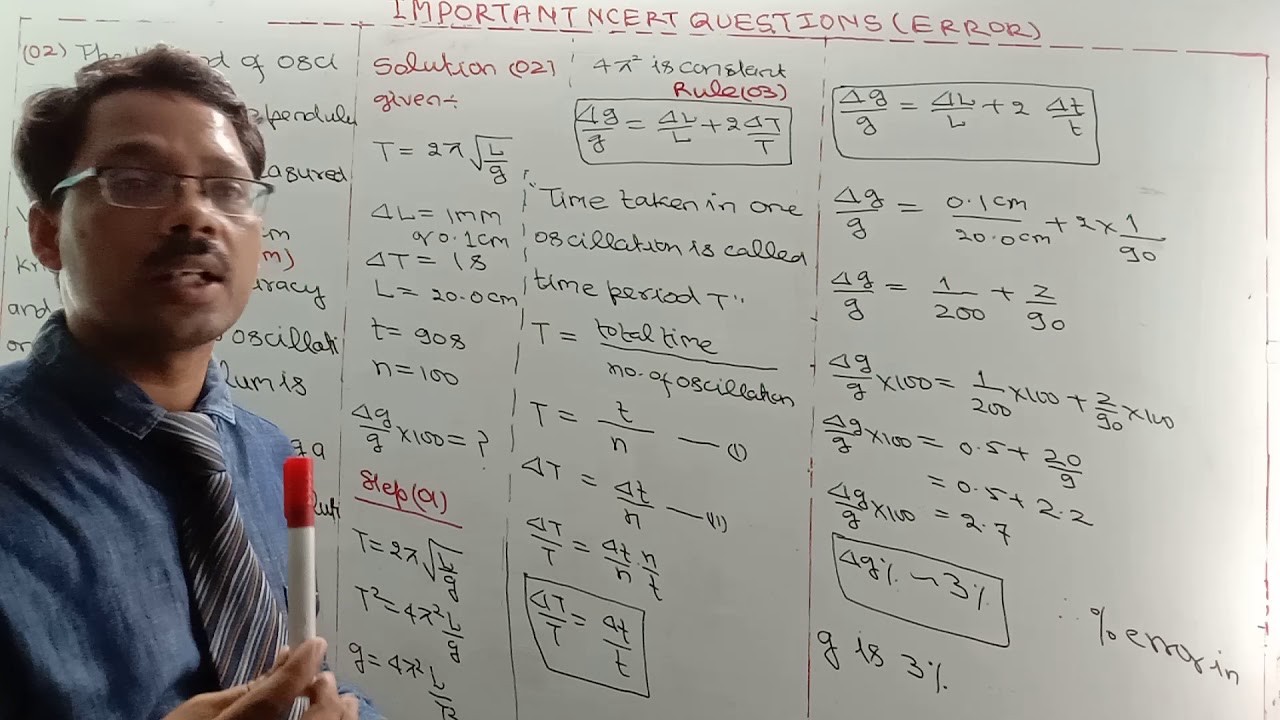 IMPORTANT NCERT QUESTIONS (ERROR)
(02) of osci
pendulu
asured
cm
m)
uracy
and
oscillati
lum is
g a
Solution (02)
given÷
T = 2π√(L/g)
ΔL = 1mm
or 0.1cm
ΔT = 1s
L = 20.0cm
t = 90s
n = 100
Δg/g × 100 = ?
Step (a)
T = 2π√(L/g)
T² = 4π² L/g
g = 4π² L/T²
4π² is constant
Rule (03)
Δg/g = ΔL/L + 2 ΔT/T
"Time taken in one
oscillation is called
time period T"
T = total time / no. of oscillation
T = t/n — (i)
ΔT = Δt/n — (ii)
ΔT/T = Δt/n · n/t
ΔT/T = Δt/t
Δg/g = ΔL/L + 2 Δt/t
Δg/g = 0.1cm/20.0cm + 2 × 1/90
Δg/g = 1/200 + 2/90
Δg/g × 100 = 1/200 × 100 + 2/90 × 100
Δg/g × 100 = 0.5 + 20/9
= 0.5 + 2.2
Δg/g × 100 = 2.7
Δg% ~ 3%
∴ % error in
g is 3%